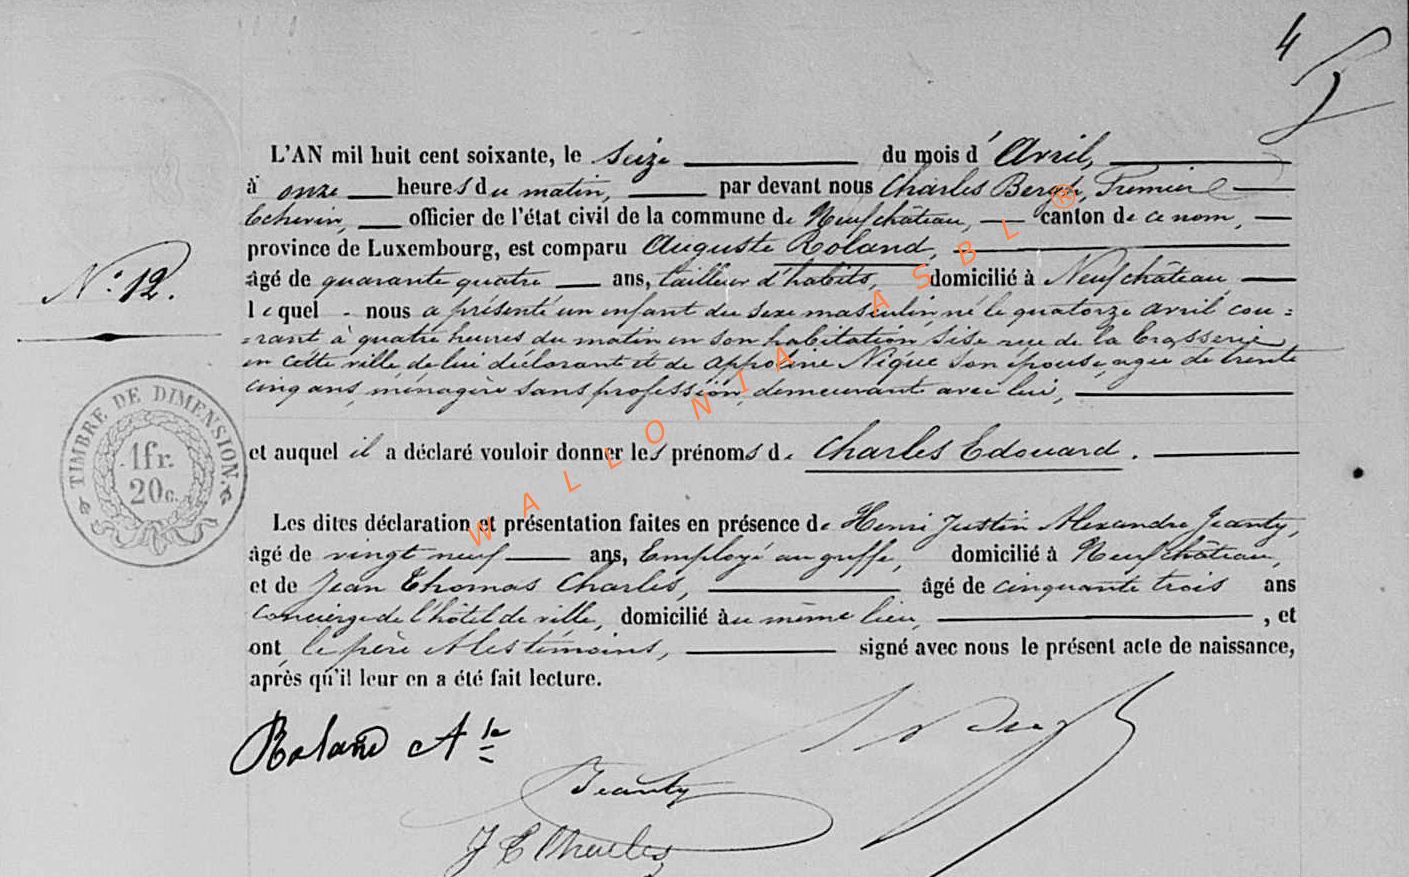 4
L'AN mil huit cent soixante, le seize du mois d' Avril,
à onze heures du matin, par devant nous Charles Bergh, Premier
Echevin, officier de l'état civil de la commune de Neufchâteau, canton de ce nom,
province de Luxembourg, est comparu Auguste Roland,
âgé de quarante quatre ans, tailleur d'habits, domicilié à Neufchâteau
N.º 12.
lequel nous a présenté un enfant du sexe masculin, né le quatorze avril cou=
=rant à quatre heures du matin en son habitation sise rue de la brasserie
en cette ville, de lui déclarant et de Appoline Nique son épouse, agée de trente
cinq ans, ménagère sans profession, demeurant avec lui,
TIMBRE DE DIMENSION.
1fr.
20c.
et auquel il a déclaré vouloir donner les prénoms de Charles Edouard.
Les dites déclaration et présentation faites en présence de Henri Justin Alexandre Jeanty,
âgé de vingt neuf ans, Employé au greffe, domicilié à Neufchâteau,
et de Jean Thomas Charles, âgé de cinquante trois ans
concierge de l'hôtel de ville, domicilié à au même lieu, , et
ont le père & les témoins, signé avec nous le présent acte de naissance,
après qu'il leur en a été fait lecture.
Roland Ate
Jeanty
J T Charles
WALLONIA ASBL ®